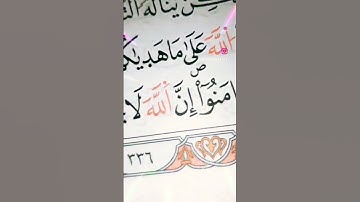 يَنَالُهُ
ٱللَّهَ عَلَىٰ مَا هَدَىٰكُ
ص
ءَامَنُوٓا۟ إِنَّ ٱللَّهَ لَا
٣٣٦